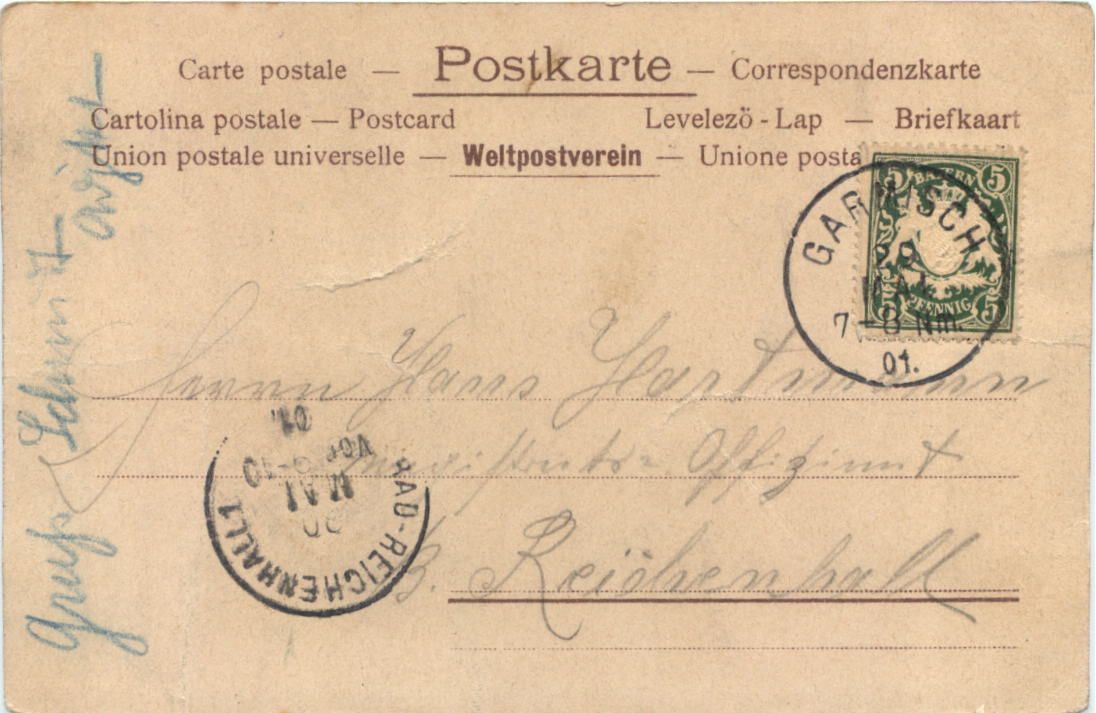 Carte postale — Postkarte — Correspondenzkarte
Cartolina postale — Postcard Levelezö - Lap — Briefkaart
Union postale universelle — Weltpostverein — Unione posta
5 BAYERN 5
5 PFENNIG 5
GARMISCH
29
MAI
7-8 Nm.
01.
Herrn Hans Hartmann
Offiziant
B. Reichenhall
BAD-REICHENHALL 1
30
MAI
VOR 9-10
01.
Gruß Schmidt